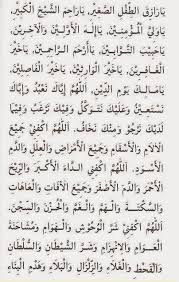 يَارَازِقَ الطِّفْلِ الصَّغِيْرِ، يَارَاحِمَ الشَّيْخِ الْكَبِيْرِ،
يَاوَلِيَّ الْمُؤْمِنِيْنَ، يَاإِلٰهَ الْأَوَّلِيْنَ وَالْآخِرِيْنَ،
يَاحَبِيْبَ التَّوَّابِيْنَ، يَاأَرْحَمَ الرَّاحِمِيْنَ، يَاخَيْرَ
الْغَافِرِيْنَ، يَاخَيْرَ الْوَارِثِيْنَ، يَاخَيْرَ الْفَاصِلِيْنَ،
يَامَالِكَ يَوْمِ الدِّيْنِ، اَللّٰهُمَّ إِيَّاكَ نَعْبُدُ وَإِيَّاكَ
نَسْتَعِيْنُ وَعَلَيْكَ نَتَوَكَّلُ وَفِيْكَ نَرْغَبُ وَفِيْمَا
لَدَيْكَ نَرْجُوْ وَمِنْكَ نَخَافُ. اَللّٰهُمَّ اكْفِنِيْ جَمِيْعَ
الْآلَامِ وَالْأَسْقَامِ وَجَمِيْعَ الْأَمْرَاضِ وَالْعِلَلِ وَالدَّمِ
الْأَسْوَدِ. اَللّٰهُمَّ اكْفِنِيْ الدَّاءَ الْأَكْبَرَ وَالرِّيْحَ
الْأَحْمَرَ وَالدَّمَ الْأَصْفَرَ وَجَمِيْعَ الْآفَاتِ وَالْعَاهَاتِ
وَالسَّكْتَةَ وَالْهَمَّ وَالْغَمَّ وَالْحُزْنَ وَالسِّجْنَ.
اَللّٰهُمَّ اكْفِنِيْ شَرَّ الْوُحُوْشِ وَالْهَوَامِّ وَمُشَاحَنَةَ
الْعَوَامِّ وَالْإِنْهِزَامِ وَشَرَّ الشَّيْطَانِ وَالسُّلْطَانِ
وَالْقَحْطِ وَالْغَلَاءِ وَالزِّلْزَالِ وَالْبَلَاءِ وَهَدْمِ الْبِنَاءِ